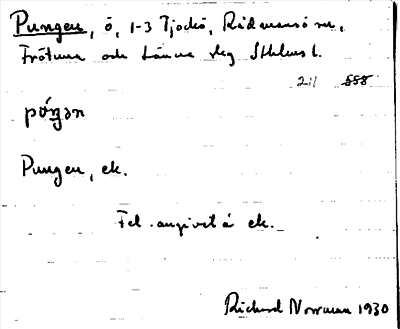 Pungen, ö, 1-3 Tjockö, Rådmansö sn,
Frötuna och Länna skg Sthlms l.
211 555
póŋgən
Pungen, ek.
Fel angivet å ek.
Rickard Norrman 1930